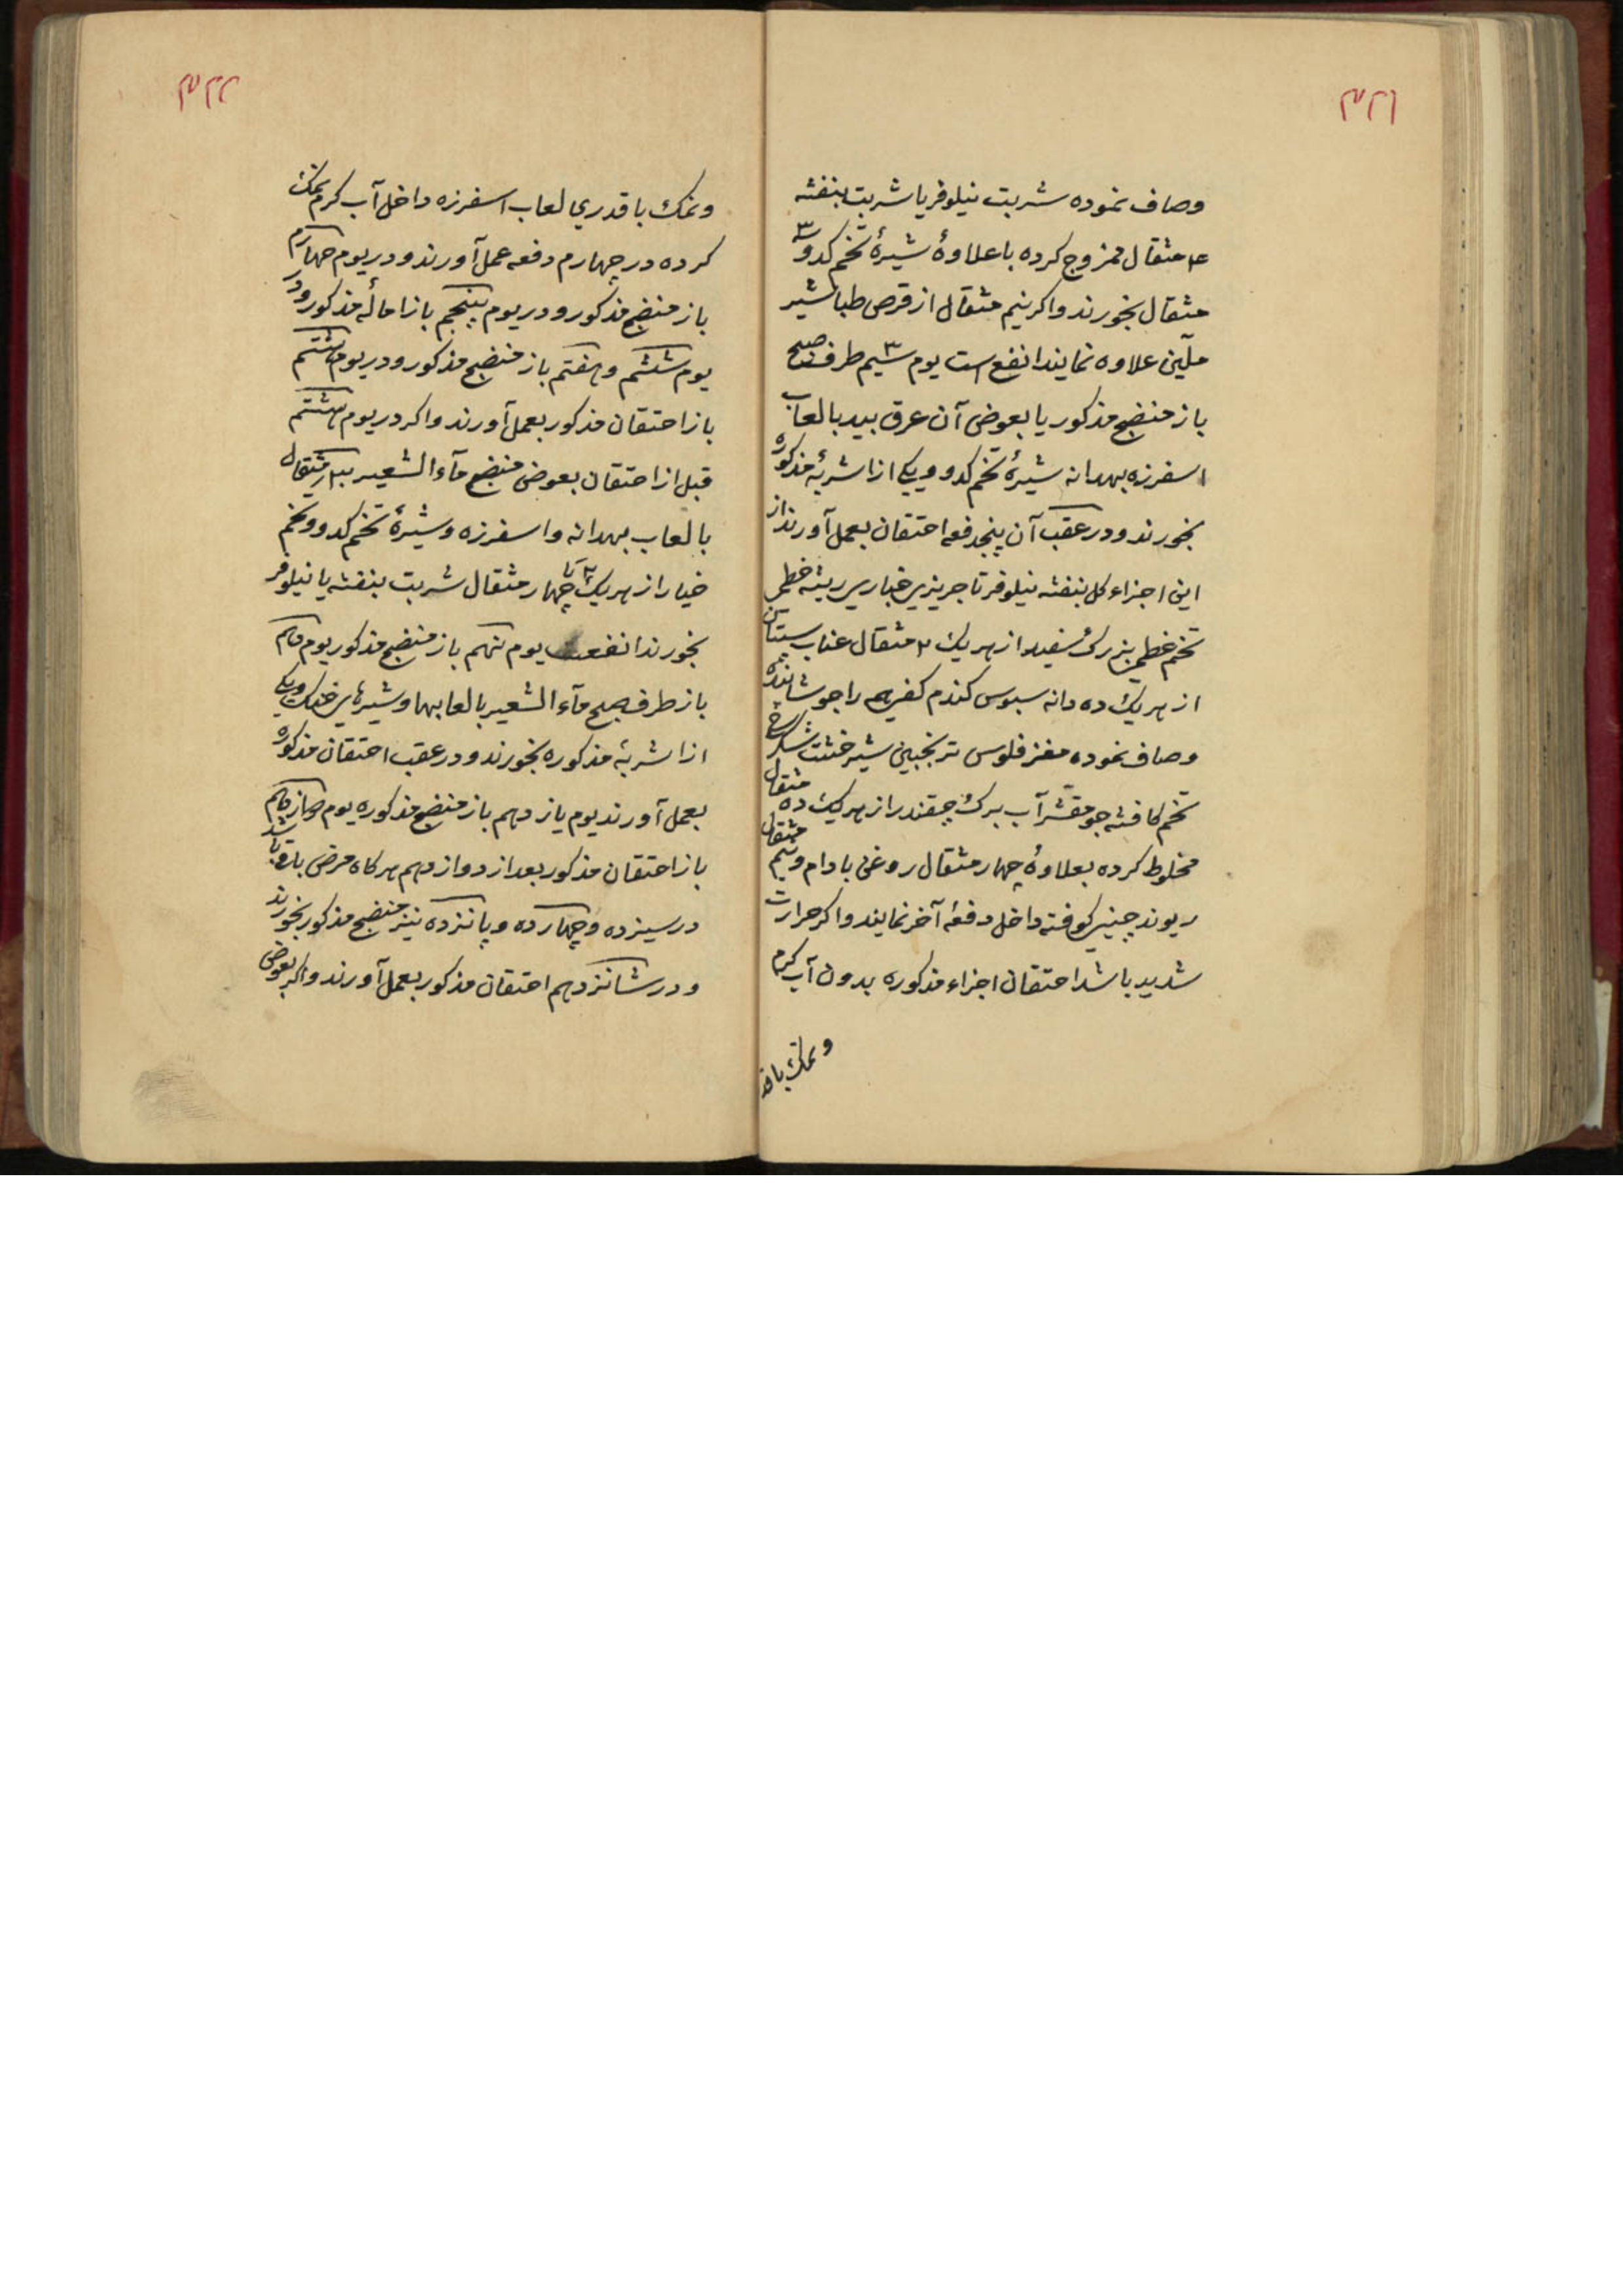 ۳۲۱
وصاف نموده شربت نیلوفر یا شربت بنفشه
۴ مثقال ممزوج کرده با علاوهٔ شیرهٔ تخم کدو ۳
مثقال بخورند و اکر نیم مثقال از قرص طباشیر
ملین علاوه نمایند انفع است یوم سیم طرف صبح
باز منضج مذکور یا بعوض آن عرق بید با لعاب
اسفرزه بهدانه شیرهٔ تخم کدو و یکی از اشربهٔ مذکوره
بخورند و در عقب آن پنجدفعه احتقان بعمل آورند از
این اجزاء کل بنفشه نیلوفر تاجریزی خبازی ریشه خطمی
تخم خطمی بزرک سفید از هریک ۲ مثقال عناب سپستان
از هریک ده دانه سبوس کندم کفی همه را جوشانیده
وصاف نموده مغز فلوس ترنجبین شیرخشت شکر سرخ
تخم کافشه جو مقشر آب برک چقندر از هریک ده مثقال
مخلوط کرده بعلاوهٔ چهار مثقال روغن بادام و نیم مثقال
ریوند چینی کوفته داخل دفعهٔ آخر نمایند و اکر حرارت
شدید باشد احتقان اجزاء مذکوره بدون آب کرم
و نمک با قد
۳۲۲
و نمک با قدری لعاب اسفرزه داخل آب کرم نمک
کرده در چهارم دفعه عمل آورند و در یوم چهارم
باز منضج مذکور و در یوم پنجم باز امالهٔ مذکور و در
یوم ششم و هفتم باز منضج مذکور و در یوم هشتم
باز احتقان مذکور بعمل آورند و اکر در یوم هشتم
قبل از احتقان بعوض منضج مآء الشعیر مثقال
با لعاب بهدانه و اسفرزه و شیرهٔ تخم کدو و تخم
خیار از هریک ۲ تا چهار مثقال شربت بنفشه یا نیلوفر
بخورند انفعست یوم نهم باز منضج مذکور یوم دهم
باز طرف صبح مآء الشعیر با لعابها و شیرهای خنک و یکی
از اشربهٔ مذکوره بخورند و در عقب احتقان مذکوره
بعمل آورند یوم یازدهم باز منضج مذکوره یوم دوازدهم
باز احتقان مذکور بعد از دوازدهم هرکاه مرض باقی باشد
در سیزده و چهارده و پانزده نیز منضج مذکور بخورند
و در شانزدهم احتقان مذکور بعمل آورند و اکر بعوض